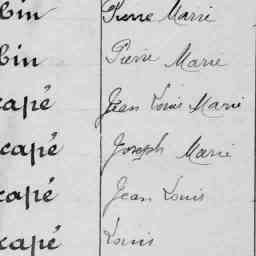 bin Pierre Marie
bin Pierre Marie
capé Jean Louis Marie
capé Joseph Marie
capé Jean Louis
capé Louis